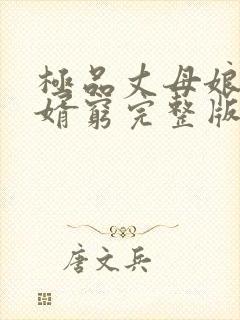 極品丈母娘
婿窮完整版
唐文兵